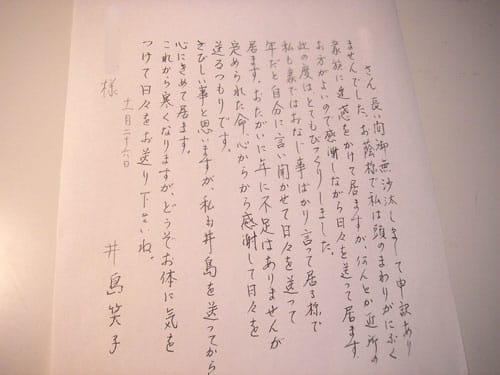 さん、長い間御無沙汰しまして申訳あり
ませんでした。お蔭様で私は頭のまわりがにぶく
家族に迷惑をかけて居ますが、何んとか近所の
お方がよいので感謝しながら日々を送って居ます。
此の度はとてもびっくりしました。
私も裏ではおなじ事ばかり言って居る様で
年だと自分に言い聞かせて日々を送って
居ます。おたがいに年に不足はありませんが
定められた命、心からから感謝して日々を
送るつもりです。
さびしい事と思いますが、私も井島を送ってから
心にきめて居ます。
これから寒くなりますが、どうぞお体に気を
つけて日々をお送り下さいね。
十一月二十六日
様
井島笑子